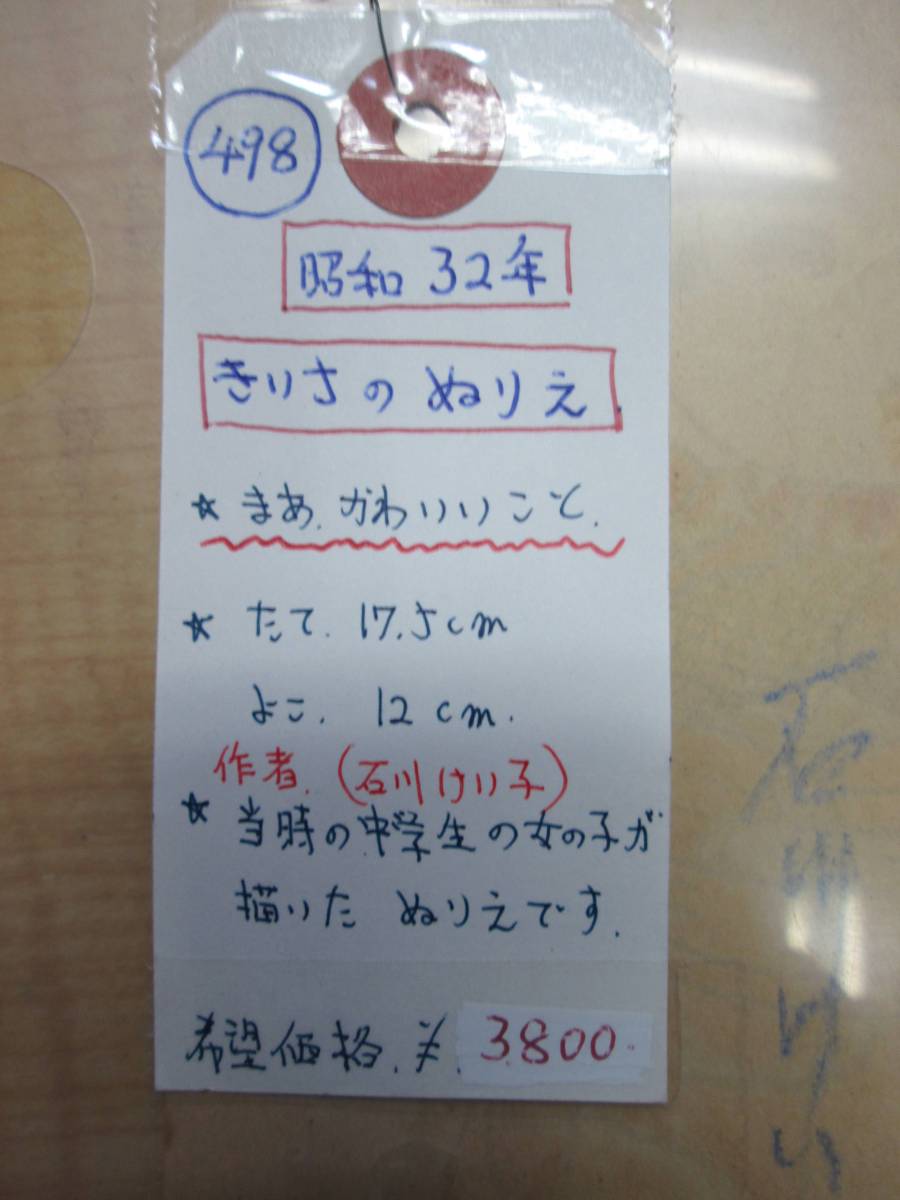 498
昭和 32年
きりさの ぬりえ.
☆ まあ. かわいいこと.
☆ たて. 17.5cm
よこ. 12cm.
作者. (石川けい子)
☆ 当時の中学生の女の子が
描いた ぬりえです.
希望価格. ¥. 3.800.
石川けい